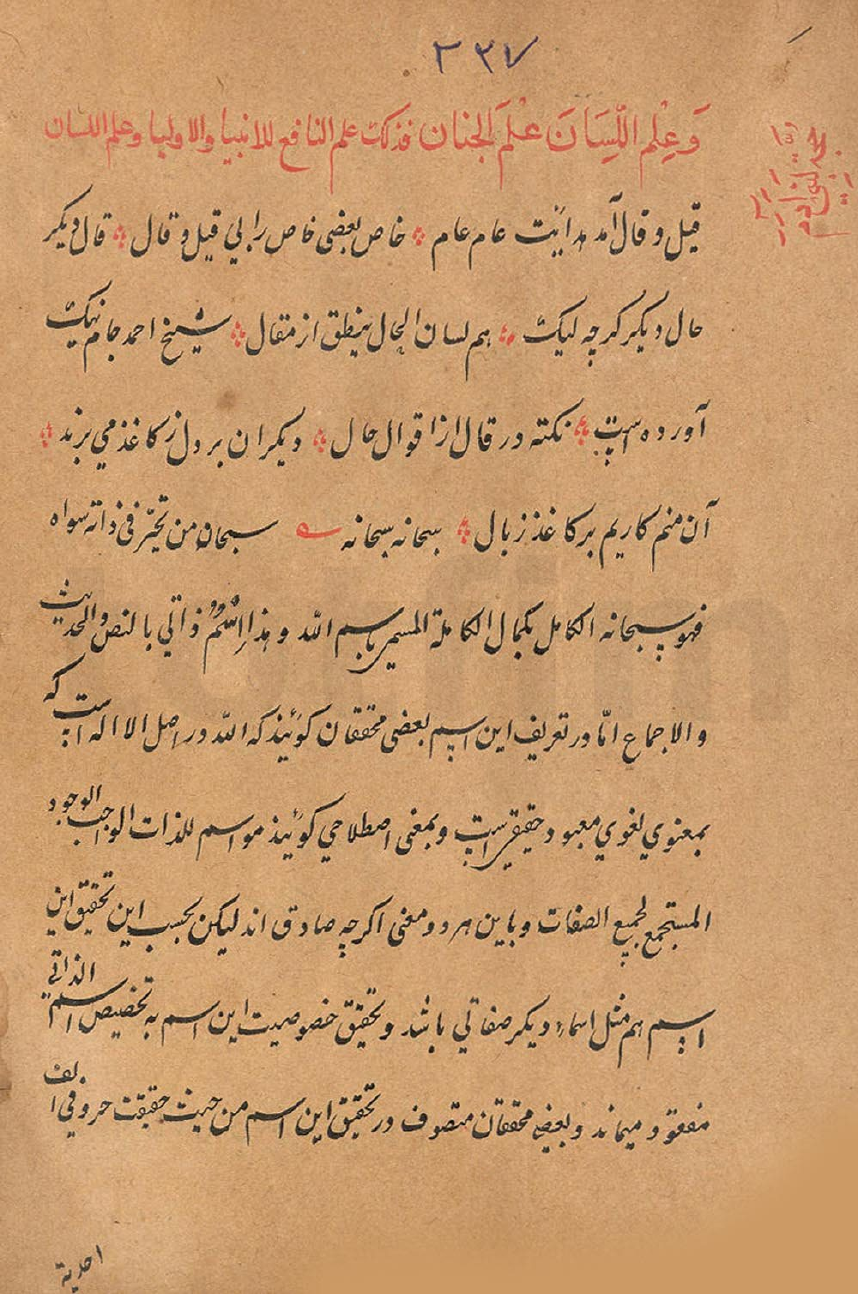 ۳۳۷
وَعِلْم اللِّسَانَ عِلْمَ الجنان فذلک علم النافع للانبیا والاولیا وعلم اللسان
قیل و قال آمد هدائیت عام عام خاص بعضی خاص را بی قیل و قال قال دیکر
حال دیکر کرچه لیک هم لسان الحال ینطق از مقال شیخ احمد جام نیک
آورده است نکته در قال از اقوال حال دیکران بر دل ز کاغذ می برند
آن منم کاریم بر کاغذ ز بال سبحانه سبحانه سبحان من تحیّر فی ذاته سواه
فهو سبحانه الکامل بکمال الکاملة المسمی باسم الله و هذا اِسْمٌ ذاتی بالنص والحدیث
والاجماع امّا در تعریف این اسم بعضی محققان کویند که الله در اصل الا اله است که
بمعنوی لغوی معبود حقیقی است و بمعنی اصطلاحی کویند هو اسم للذات الواجب الوجود
المستجمع لجمیع الصفات و باین هر دو معنی اکرچه صادق اند لیکن بحسب این تحقیق این
اسم هم مثل اسماء دیکر صفاتی باشد و تحقیق خصوصیت این اسم به تخصیص اسم الذاتی
مفقود میماند و بعضی محققان متصوف در تحقیق این اسم من حیث حقیقت حروفی الف
احدیة